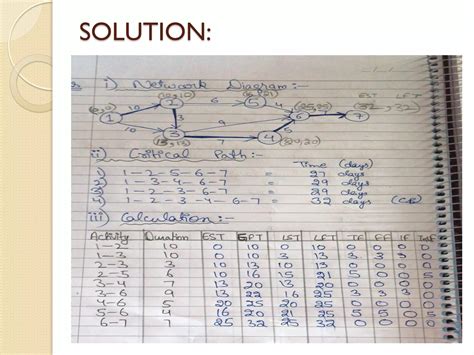 SOLUTION:
i) Network Diagram :-
EST LFT
(10,10) (16,21) (25,25) (32, 32)
(0,0) 1 10 2 6 5 4 6 7 7
10 3 3 9 7 4 5
(13,13) (20,20)
ii) Critical Path :-
Time (days)
1) 1-2-5-6-7 = 27 days
2) 1-3-4-6-7 = 29 days
3) 1-2-3-6-7 = 29 days
4) 1-2-3-4-6-7 = 32 days (CP)
iii) Calculation :-
Activity Duration EST EFT LST LFT TF FF IF
1-2 10 0 10 0 10 0 0 0
1-3 10 0 10 3 13 3 3 3
2-3 3 10 13 10 13 0 0 0
2-5 6 10 16 15 21 5 0 0
3-4 7 13 20 13 20 0 0 0
3-6 9 13 22 16 25 3 3 3
4-6 5 20 25 20 25 0 0 0
5-6 4 16 20 21 25 5 5 0
6-7 7 25 32 25 32 0 0 0